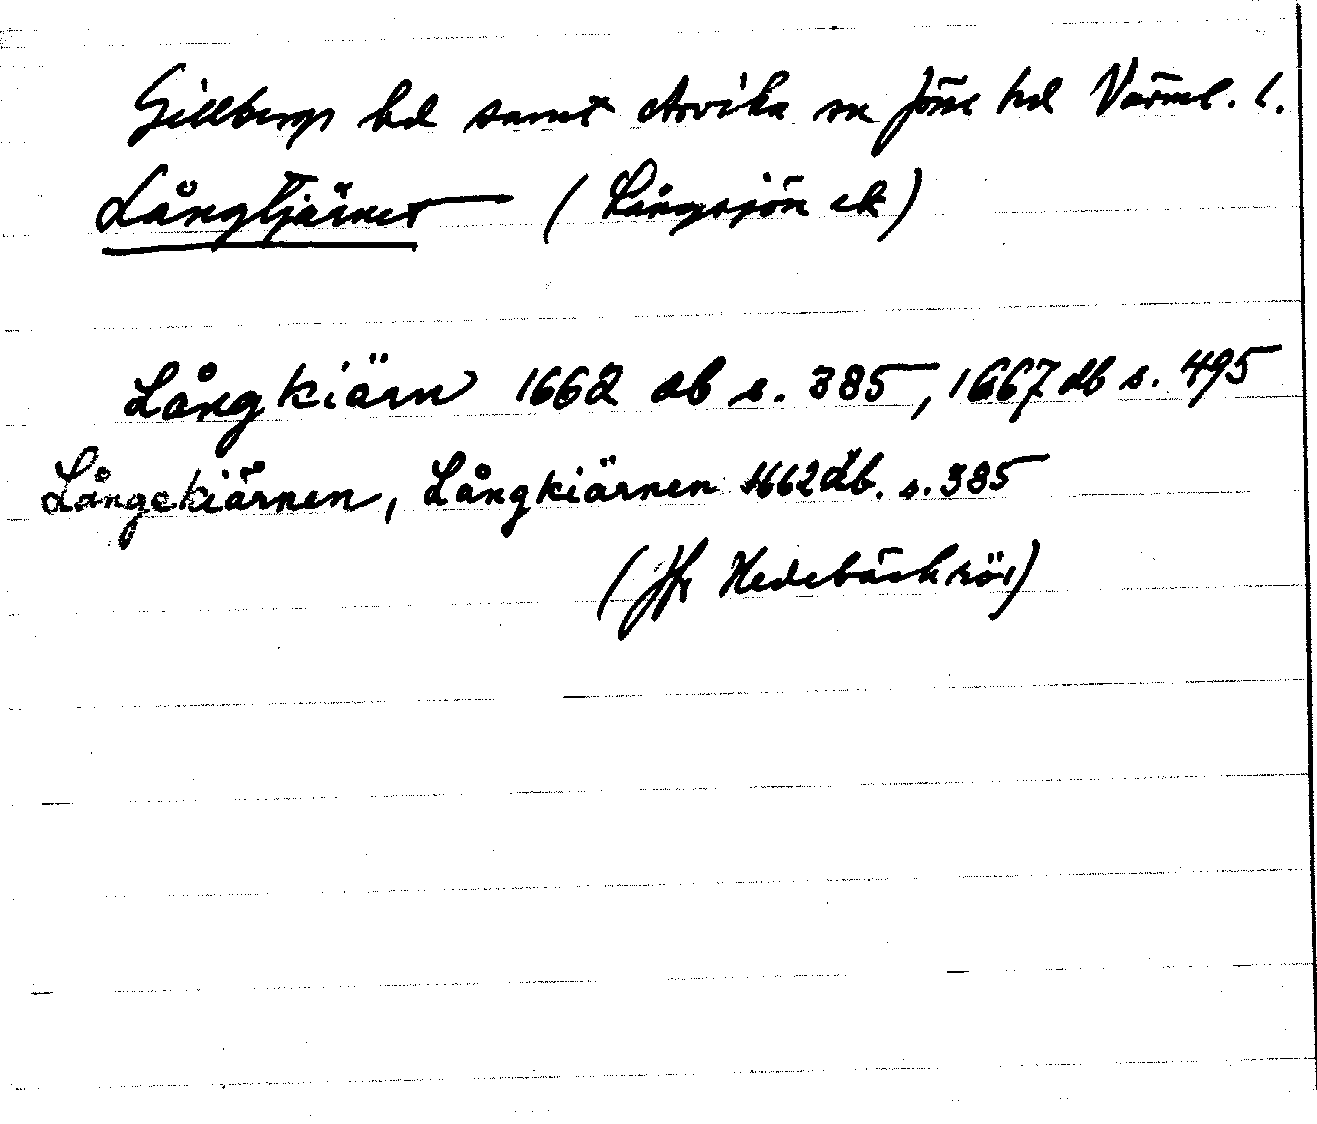 Gillbergs hd samt Arvika sn Jösse hd Värml. l.
Långtjärnet (Långsjön ek)
Långkiärn 1662 db s. 385, 1667 db s. 495
Långekiärnen, Långkiärnen 1662 db. s. 385
(Jfr Hedebäcksrör)